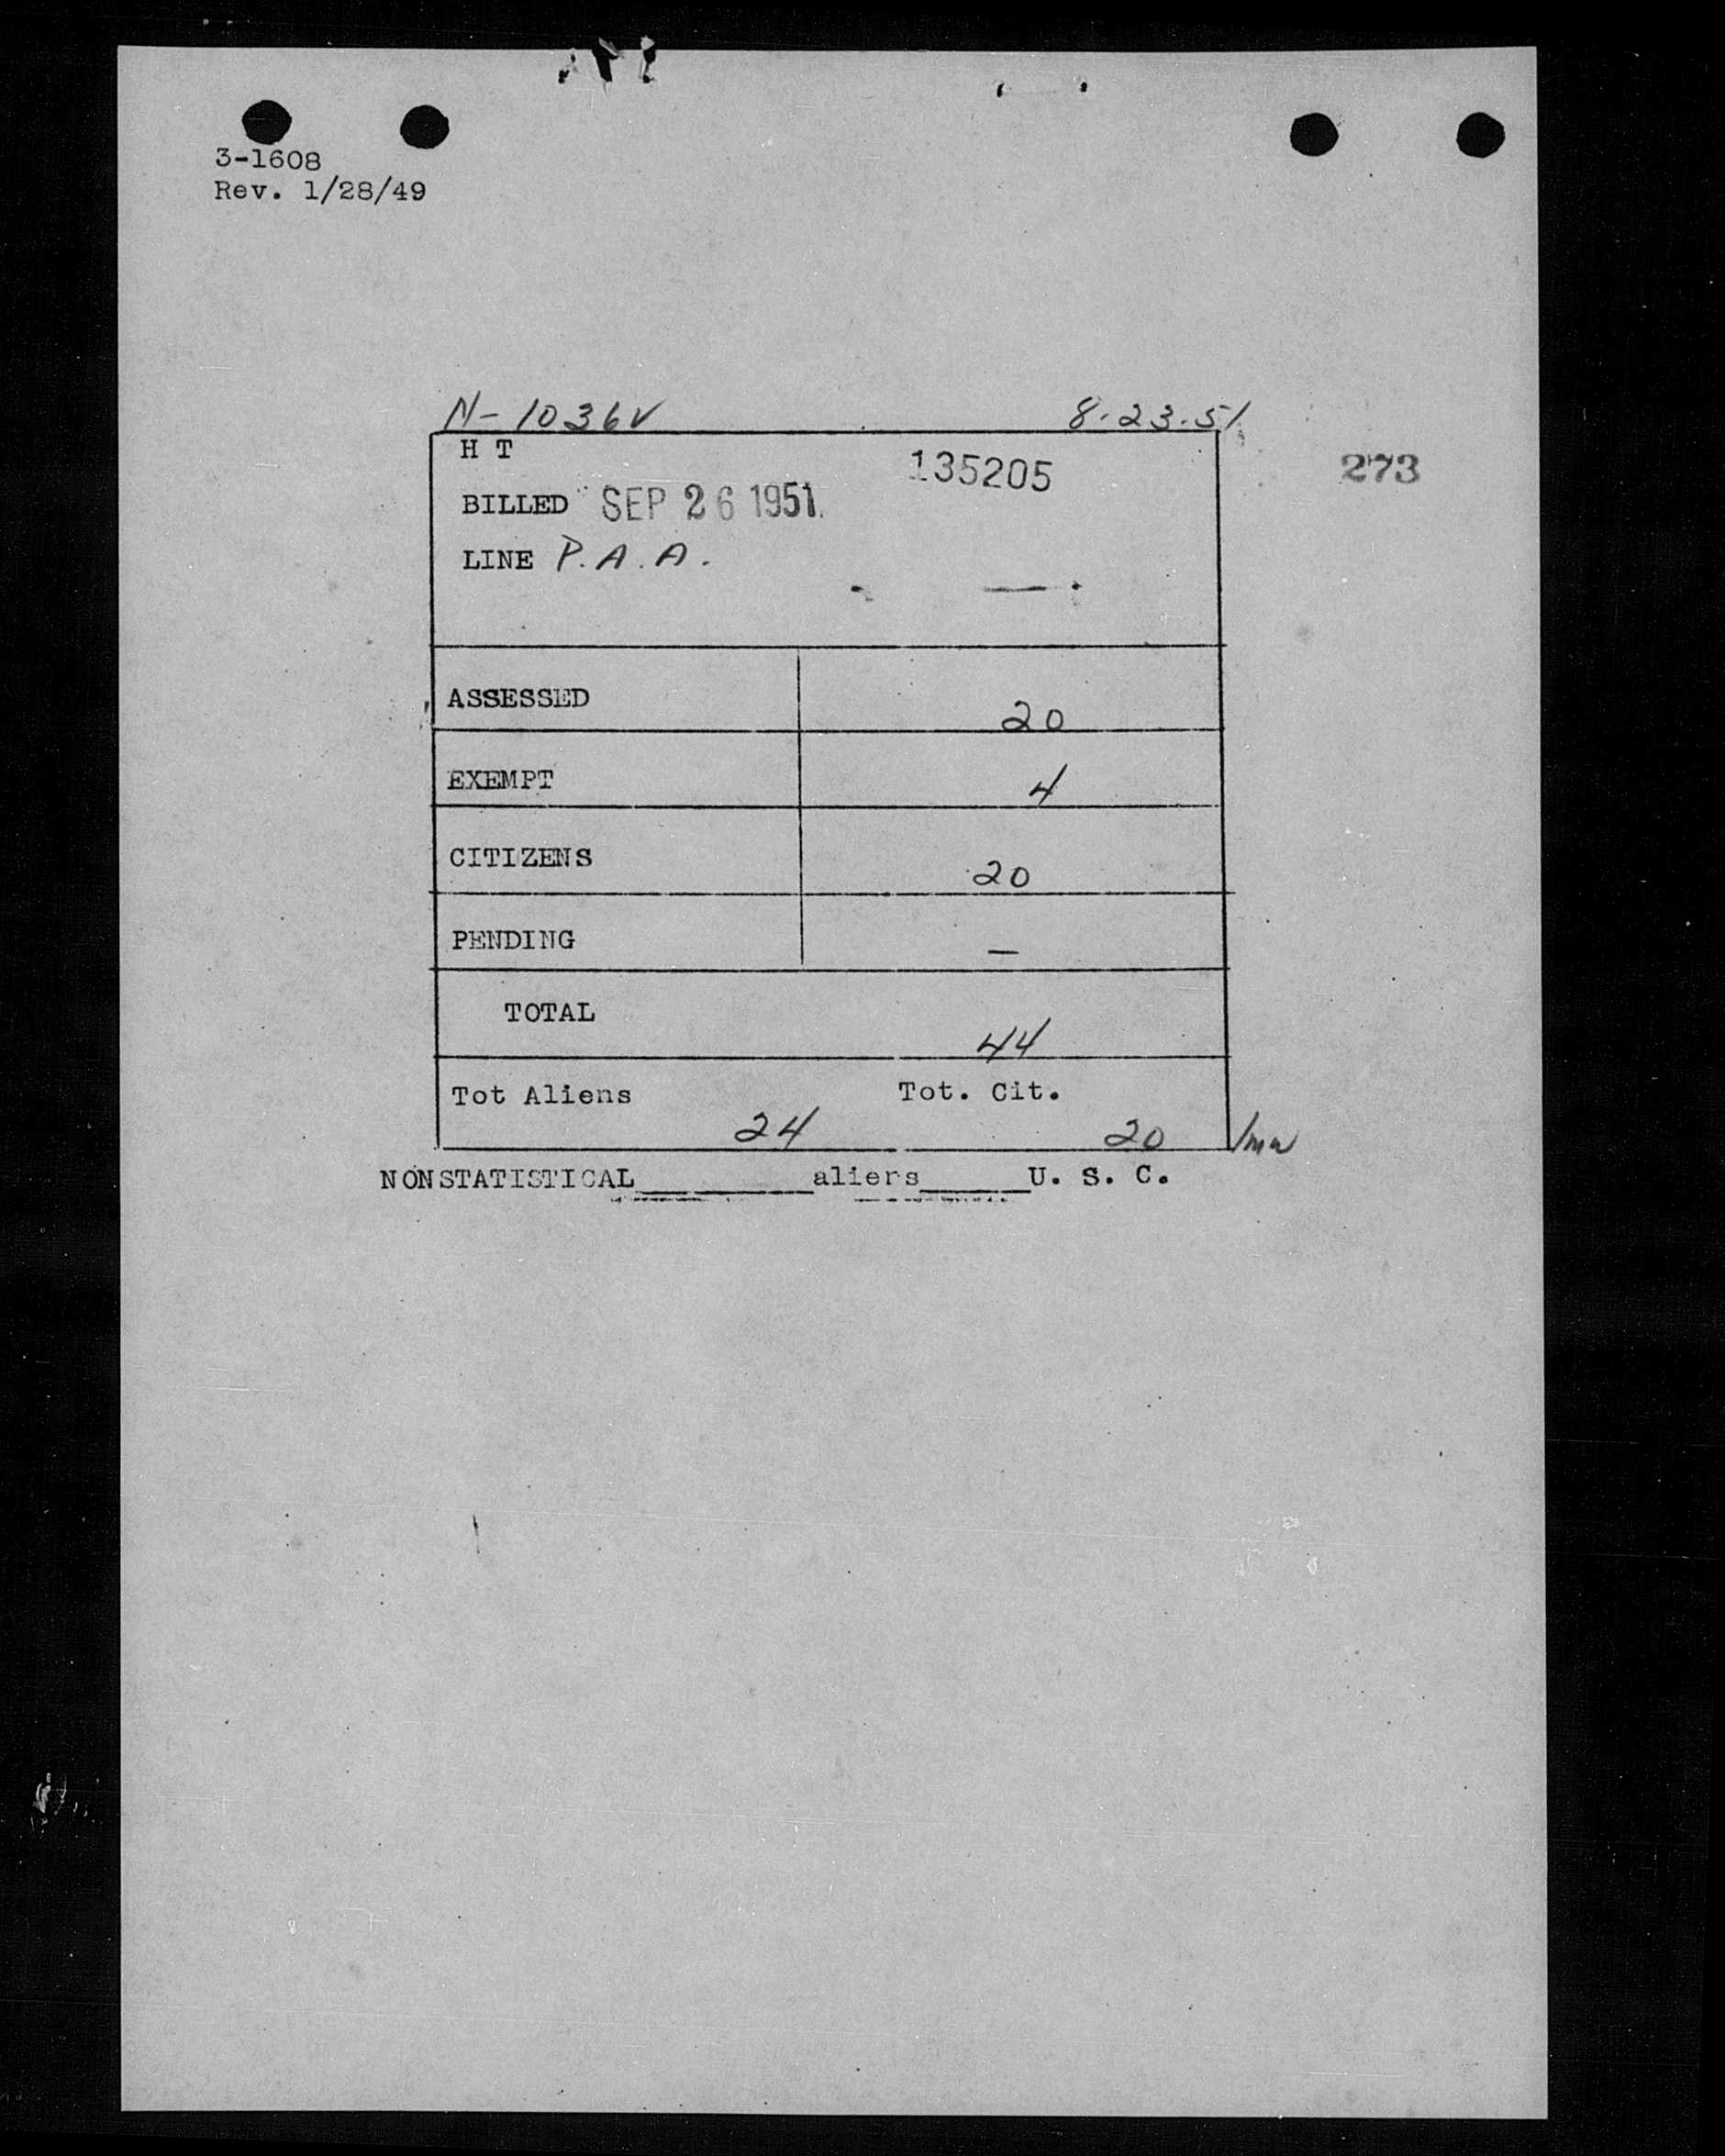 3-1608
Rev. 1/28/49
N-1036V 8.23.51
H T 135205 273
BILLED SEP 26 1951.
LINE P.A.A.
ASSESSED 20
EXEMPT 4
CITIZENS 20
PENDING —
TOTAL 44
Tot Aliens 24 Tot. Cit. 20
NONSTATISTICAL________aliens_____U. S. C.